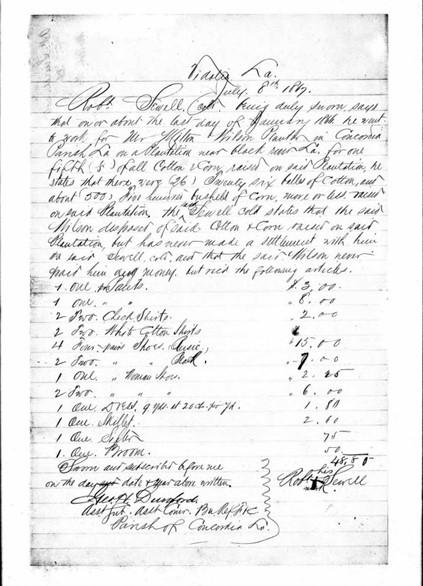 Vidalia La.
July 8th 1867.
Robt Sewell, (cold) being duly sworn, says
that on or about the last day of January 1866 he went
to work, for Mr Milton Wilson Planter in Concordia
Parish La on a Plantation near black river La. for one
eighth (⅛) of all Cotton & Corn, raised on said Plantation, he
states that there were (26) Twenty six balles of Cotton, and
about (500) Five hundred bushels of Corn, more or less raised
on said Plantation, the said Sewell cold states that the said
Wilson disposed of said Cotton & Corn raised on said
Plantation, but has never made a settlement with him
on said Sewell, cold. and that the said Wilson never
paid him any money. but recd the following articles.
1 One " $3,00.
1 One. " " " 8.00
2 Two. Check Shirts. " 2.00
2 Two. White Cotton Shirts
4 Four- pairs Shoes. " 15.00
2 Two. " " " 7.00
1 One " Woman Shoes. " 2.25
2 Two. " " " 6.00
1 One. 9 yds at 20cts per yd. 1.80
1 One. 2.60
1 One 75
1 One. Broom. 50
48.50
Sworn and subscribed before me
on the day date & year above written.
Robt his X mark Sewell
Asst Sub. Asst Comr. Bu Ref &c
Parish of Concordia La.